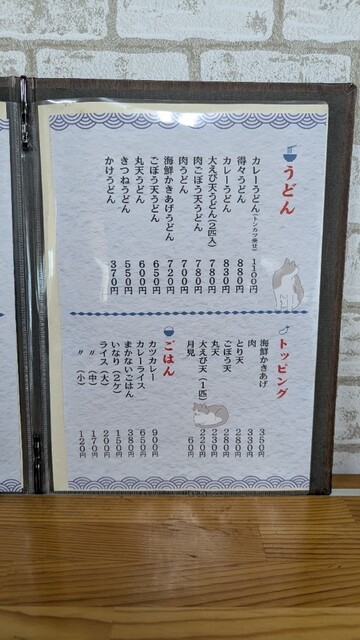 うどん
カレーうどん(トンカツ乗せ) 1100円
得々うどん 880円
カレーうどん 830円
大えび天うどん(2匹入) 780円
肉ごぼう天うどん 780円
肉うどん 700円
海鮮かきあげうどん 720円
ごぼう天うどん 650円
丸天うどん 600円
きつねうどん 550円
かけうどん 370円
トッピング
海鮮かきあげ 350円
肉 330円
とり天 280円
ごぼう天 280円
丸天 230円
大えび天(1匹) 220円
月見 60円
ごはん
カツカレー 900円
カレーライス 650円
まかないごはん 380円
いなり(2ケ) 150円
ライス(大) 200円
〃(中) 170円
〃(小) 120円